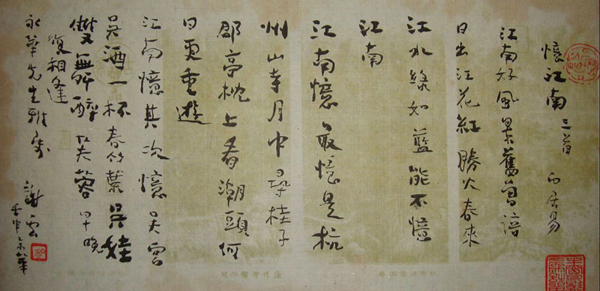 憶江南 三首 白居易
江南好風景舊曾諳
日出江花紅勝火春來
江水綠如藍能不憶
江南
江南憶最憶是杭
州山寺月中尋桂子
郡亭枕上看潮頭何
日更重遊
江南憶其次憶吳宮
吳酒一杯春竹葉吳娃
雙舞醉芙蓉早晚
復相逢
永華先生雅屬 謝雲
壬申京華